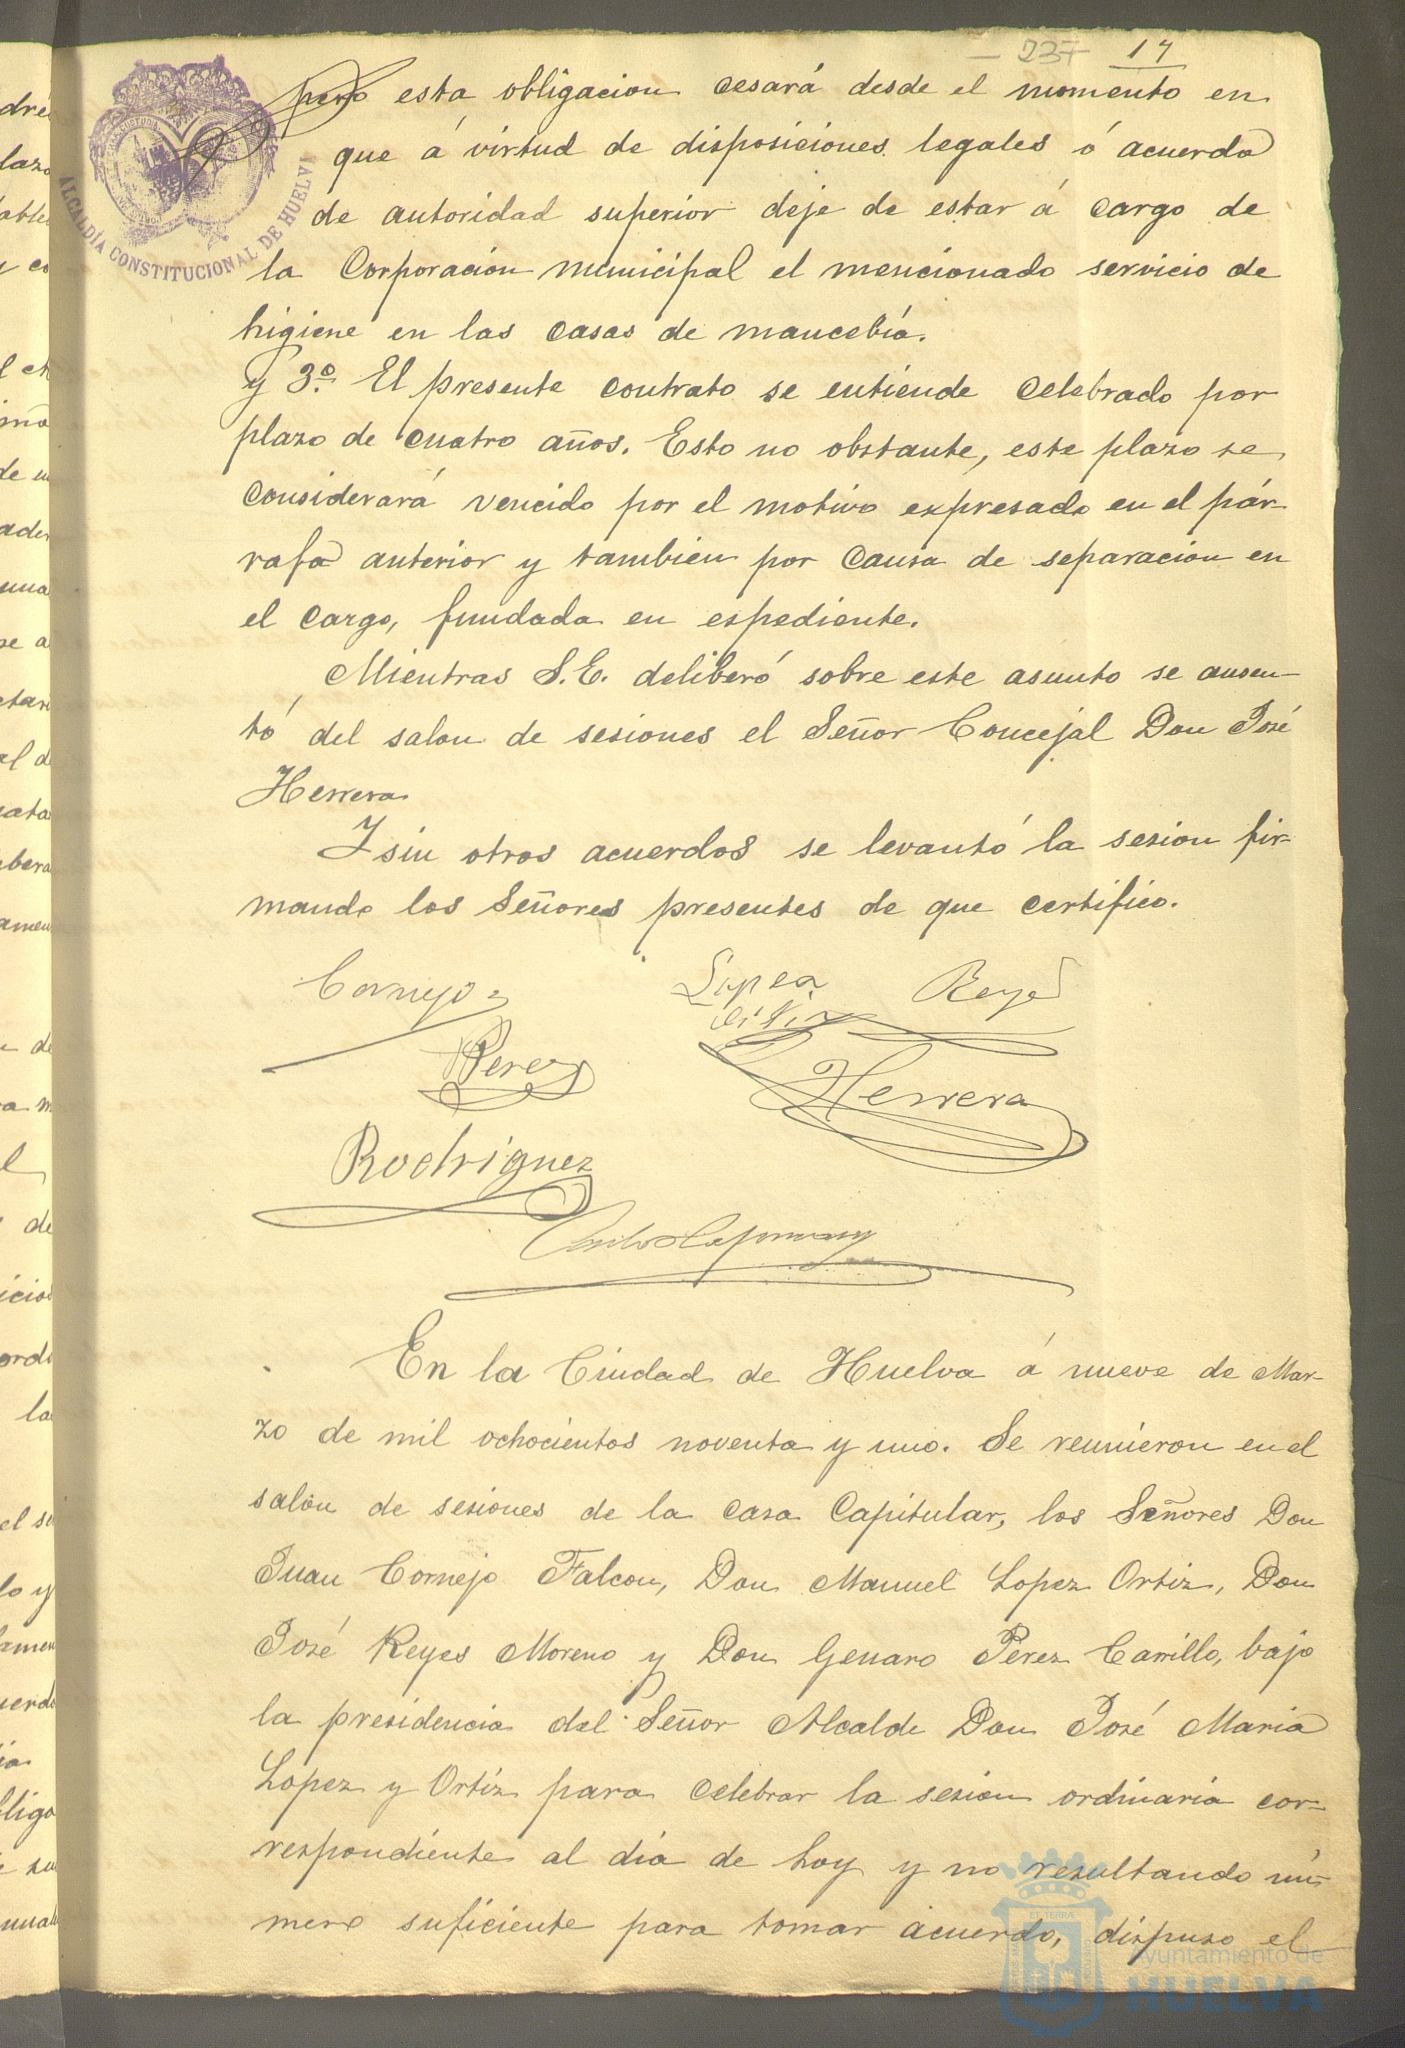 237 17
pero esta obligacion cesará desde el momento en
que á virtud de disposiciones legales ó acuerdo
de autoridad superior deje de estar á cargo de
la Corporación municipal el mencionado servicio de
higiene en las casas de mancebía.
y 3º. El presente contrato se entiende celebrado por
plazo de cuatro años. Esto no obstante, este plazo se
considerará vencido por el motivo expresado en el pár-
rafo anterior y tambien por causa de separacion en
el cargo, fundada en espediente.
Mientras S.E. deliberó sobre este asunto se ausen-
tó del salon de sesiones el Señor Concejal Don José
Herrera
Y sin otros acuerdos se levantó la sesion fir-
mando los Señores presentes de que certifico.
Cornejo Lopez Reyes
Ortiz
Perez
Herrera
Rodriguez
En la Ciudad de Huelva á nueve de Mar-
zo de mil ochocientos noventa y uno. Se reunieron en el
salon de sesiones de la casa Capitular, los Señores Don
Juan Cornejo Falcon, Don Manuel Lopez Ortiz, Don
José Reyes Moreno y Don Genaro Perez Carrillo, bajo
la presidencia del Señor Alcalde Don José Maria
Lopez y Ortiz para celebrar la sesion ordinaria cor-
respondiente al dia de hoy y no resultando nú-
mero suficiente para tomar acuerdo, dispuso el
ALCALDÍA CONSTITUCIONAL DE HUELVA
Ayuntamiento de
HUELVA